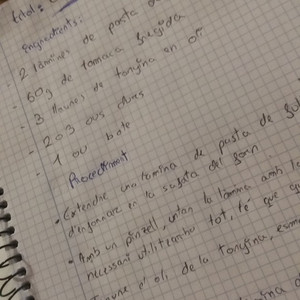 Ingredients:
- 2 làmines de pasta de
- 60g de tomaca fregida
- 3 llaunes de tonyina en oli
- 2 o 3 ous durs
- 1 ou batut
Procediment
• Extendre una làmina de pasta de full
d'enfornar en la safata del forn
• Amb un pinzell, untar la làmina amb
necessari utilitzar-ho tot, té que
l'oli de la tonyina,